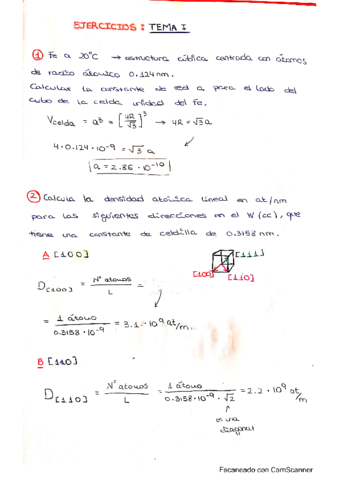 EJERCICIOS: TEMA I
① Fe a 20°C → estructura cúbica centrada con átomos
de radio atómico 0.124 nm.
Calcular la constante de red a para el lado del
cubo de la celda unidad del Fe.
Vcelda = a³ = [4R/√3]³ → 4R = √3 a
4·0.124·10⁻⁹ = √3 a
a = 2.86·10⁻¹⁰
② Calcula la densidad atómica lineal en at/nm
para las siguientes direcciones en el W (cc), que
tiene una constante de celdilla de 0.3158 nm.
A [100]
[111]
[100]
[110]
D[100] = Nº atomos / L =
= 1 átomo / 0.3158·10⁻⁹ = 3.1·10⁹ at/m.
B [110]
D[110] = Nº atomos / L = 1 átomo / 0.3158·10⁻⁹·√2 = 2.2·10⁹ at/m
es una
diagonal
Escaneado con CamScanner